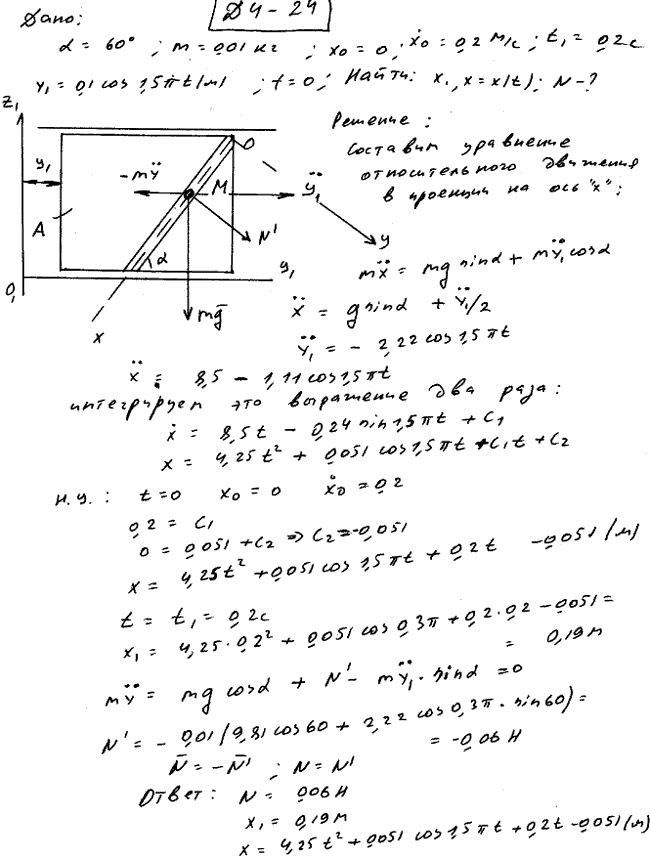 Д4-24
Дано:
α = 60° ; m = 0,01 кг ; x0 = 0 ; ẋ0 = 0,2 м/с ; t1 = 0,2 с
y1 = 0,1 cos 1,5πt (м) ; f = 0 ; Найти: x1, x = x(t); N - ?
Решение:
Составим уравнение
относительного движения
в проекции на ось "x":
z1
y1
-mÿ
M
O
ÿ1
A
N'
y
α
y1
O1
mg̅
x
mẍ = mg sinα + mÿ1 cosα
ẍ = g sinα + ÿ1/2
ÿ1 = - 2,22 cos 1,5πt
ẍ = 8,5 - 1,11 cos 1,5πt
интегрируем это выражение два раза:
ẋ = 8,5t - 0,24 sin 1,5πt + C1
x = 4,25t² + 0,051 cos 1,5πt + C1t + C2
н.у.: t = 0 x0 = 0 ẋ0 = 0,2
0,2 = C1
0 = 0,051 + C2 => C2 = -0,051
x = 4,25t² + 0,051 cos 1,5πt + 0,2t - 0,051 (м)
t = t1 = 0,2 с
x1 = 4,25·0,2² + 0,051 cos 0,3π + 0,2·0,2 - 0,051 =
= 0,19 м
mÿ = mg cosα + N' - mÿ1·sinα = 0
N' = - 0,01 (9,81 cos60 + 2,22 cos 0,3π · sin60) =
= -0,06 Н
N̅ = -N̅' ; N = N'
Ответ: N = 0,06 Н
x1 = 0,19 м
x = 4,25t² + 0,051 cos 1,5πt + 0,2t - 0,051 (м)